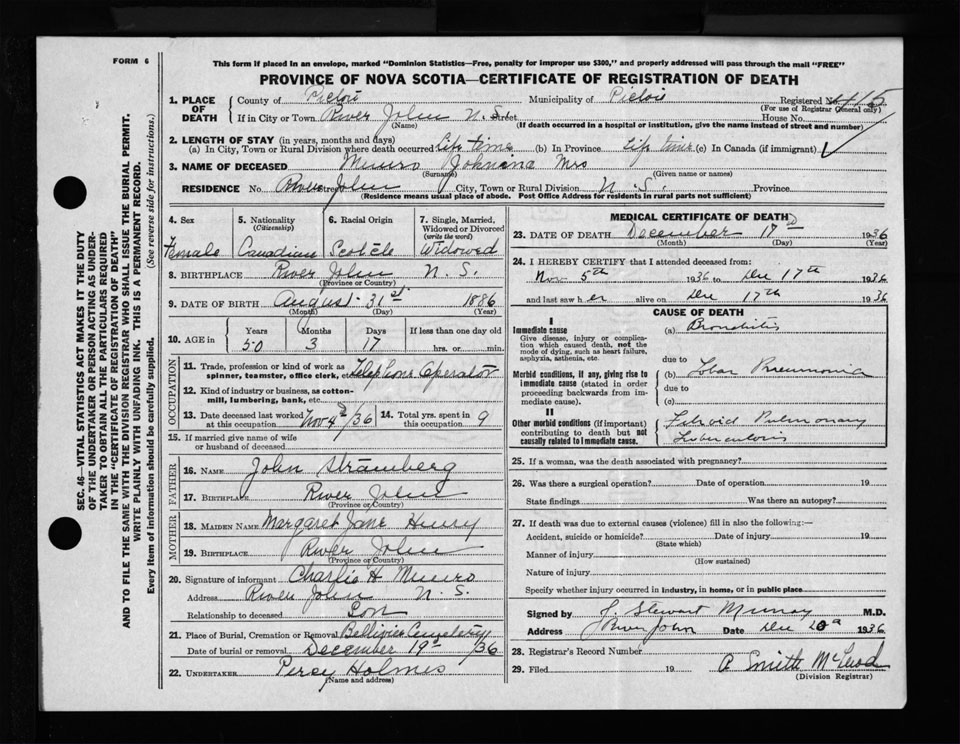 FORM 6
This form if placed in an envelope, marked "Dominion Statistics—Free, penalty for improper use $300," and properly addressed will pass through the mail "FREE"
PROVINCE OF NOVA SCOTIA—CERTIFICATE OF REGISTRATION OF DEATH
SEC. 46—VITAL STATISTICS ACT MAKES IT THE DUTY
OF THE UNDERTAKER OR PERSON ACTING AS UNDER-
TAKER TO OBTAIN ALL THE PARTICULARS REQUIRED
IN THE "CERTIFICATE OF REGISTRATION OF DEATH"
AND TO FILE THE SAME WITH THE DIVISION REGISTRAR WHO SHALL ISSUE THE BURIAL PERMIT.
WRITE PLAINLY WITH UNFADING INK. THIS IS A PERMANENT RECORD.
Every item of information should be carefully supplied. (See reverse side for instructions.)
1. PLACE OF DEATH
County of Pictou Municipality of Pictou Registered No.
(For use of Registrar General only)
If in City or Town River John N.S. Street House No.
(Name) (If death occurred in a hospital or institution, give the name instead of street and number)
2. LENGTH OF STAY (in years, months and days)
(a) In City, Town or Rural Division where death occurred life time (b) In Province life time (c) In Canada (if immigrant)
3. NAME OF DECEASED Munro Johnina Mrs
(Surname) (Given name or names)
RESIDENCE No. Street River John City, Town or Rural Division N.S. Province
(Residence means usual place of abode. Post Office Address for residents in rural parts not sufficient)
4. Sex Female
5. Nationality (Citizenship) Canadian
6. Racial Origin Scotch
7. Single, Married, Widowed or Divorced (write the word) Widowed
8. BIRTHPLACE River John N.S.
(Province or Country)
9. DATE OF BIRTH August 31st 1886
(Month) (Day) (Year)
10. AGE in Years 50 Months 3 Days 17 If less than one day old hrs. or min.
OCCUPATION
11. Trade, profession or kind of work as spinner, teamster, office clerk, etc. Telephone Operator
12. Kind of industry or business, as cotton-mill, lumbering, bank, etc.
13. Date deceased last worked at this occupation Nov 4 /36 14. Total yrs. spent in this occupation 9
15. If married give name of wife or husband of deceased
FATHER
16. NAME John Stramberg
17. BIRTHPLACE River John
(Province or Country)
MOTHER
18. MAIDEN NAME Margaret Jane Henry
19. BIRTHPLACE River John
(Province or Country)
20. Signature of informant Charlie H Munro
Address River John N.S.
Relationship to deceased Son
21. Place of Burial, Cremation or Removal Cemetery
Date of burial or removal December 19 /36
22. UNDERTAKER Percy Holmes
(Name and address)
MEDICAL CERTIFICATE OF DEATH
23. DATE OF DEATH December 17 1936
(Month) (Day) (Year)
24. I HEREBY CERTIFY that I attended deceased from:
Nov 5th 1936 to Dec 17th 1936
and last saw her alive on Dec 17th 1936
CAUSE OF DEATH
I
Immediate cause
Give disease, injury or complication which caused death, not the mode of dying, such as heart failure, asphyxia, asthenia, etc.
(a) Bronchitis
due to
Morbid conditions, if any, giving rise to immediate cause (stated in order proceeding backwards from immediate cause).
(b) Lobar Pneumonia
due to
(c)
II
Other morbid conditions (if important) contributing to death but not causally related to immediate cause.
Fibroid Pulmonary
Tuberculosis
25. If a woman, was the death associated with pregnancy?
26. Was there a surgical operation? Date of operation 19
State findings Was there an autopsy?
27. If death was due to external causes (violence) fill in also the following:—
Accident, suicide or homicide? Date of injury 19
(State which)
Manner of injury
(How sustained)
Nature of injury
Specify whether injury occurred in industry, in home, or in public place
Signed by J. Stewart Murray M.D.
Address River John Date Dec 1936
28. Registrar's Record Number
29. Filed 19 A Smith McLeod
(Division Registrar)